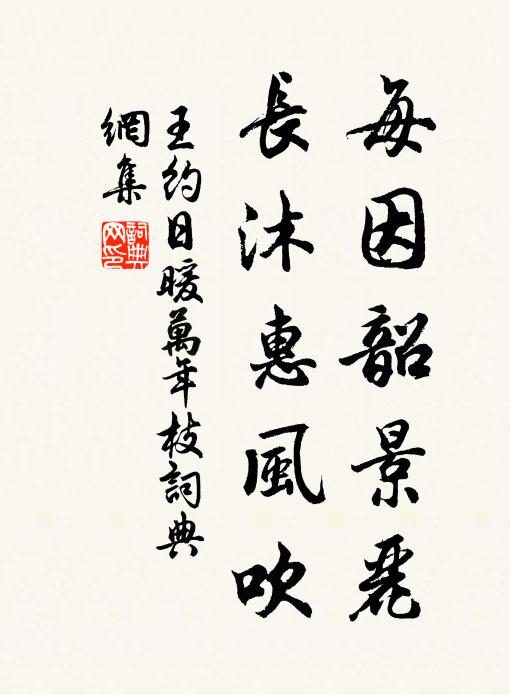 每因韶景麗
長沐惠風吹
王約日暖萬年枝詞典
網集
詞典
网印